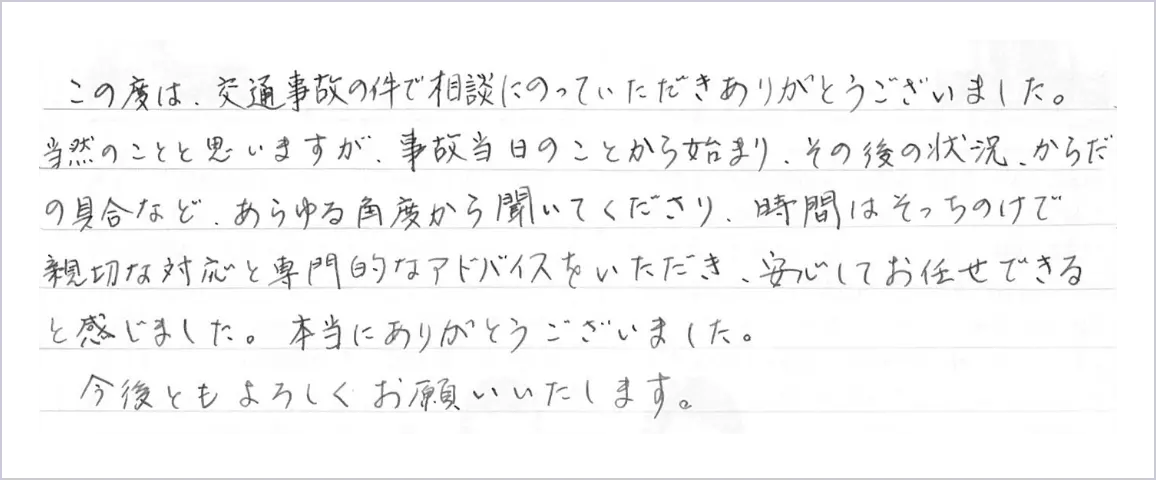 この度は、交通事故の件で相談にのっていただきありがとうございました。
当然のことと思いますが、事故当日のことから始まり、その後の状況、からだ
の具合など、あらゆる角度から聞いてくださり、時間はそっちのけで
親切な対応と専門的なアドバイスをいただき、安心してお任せできる
と感じました。本当にありがとうございました。
今後ともよろしくお願いいたします。